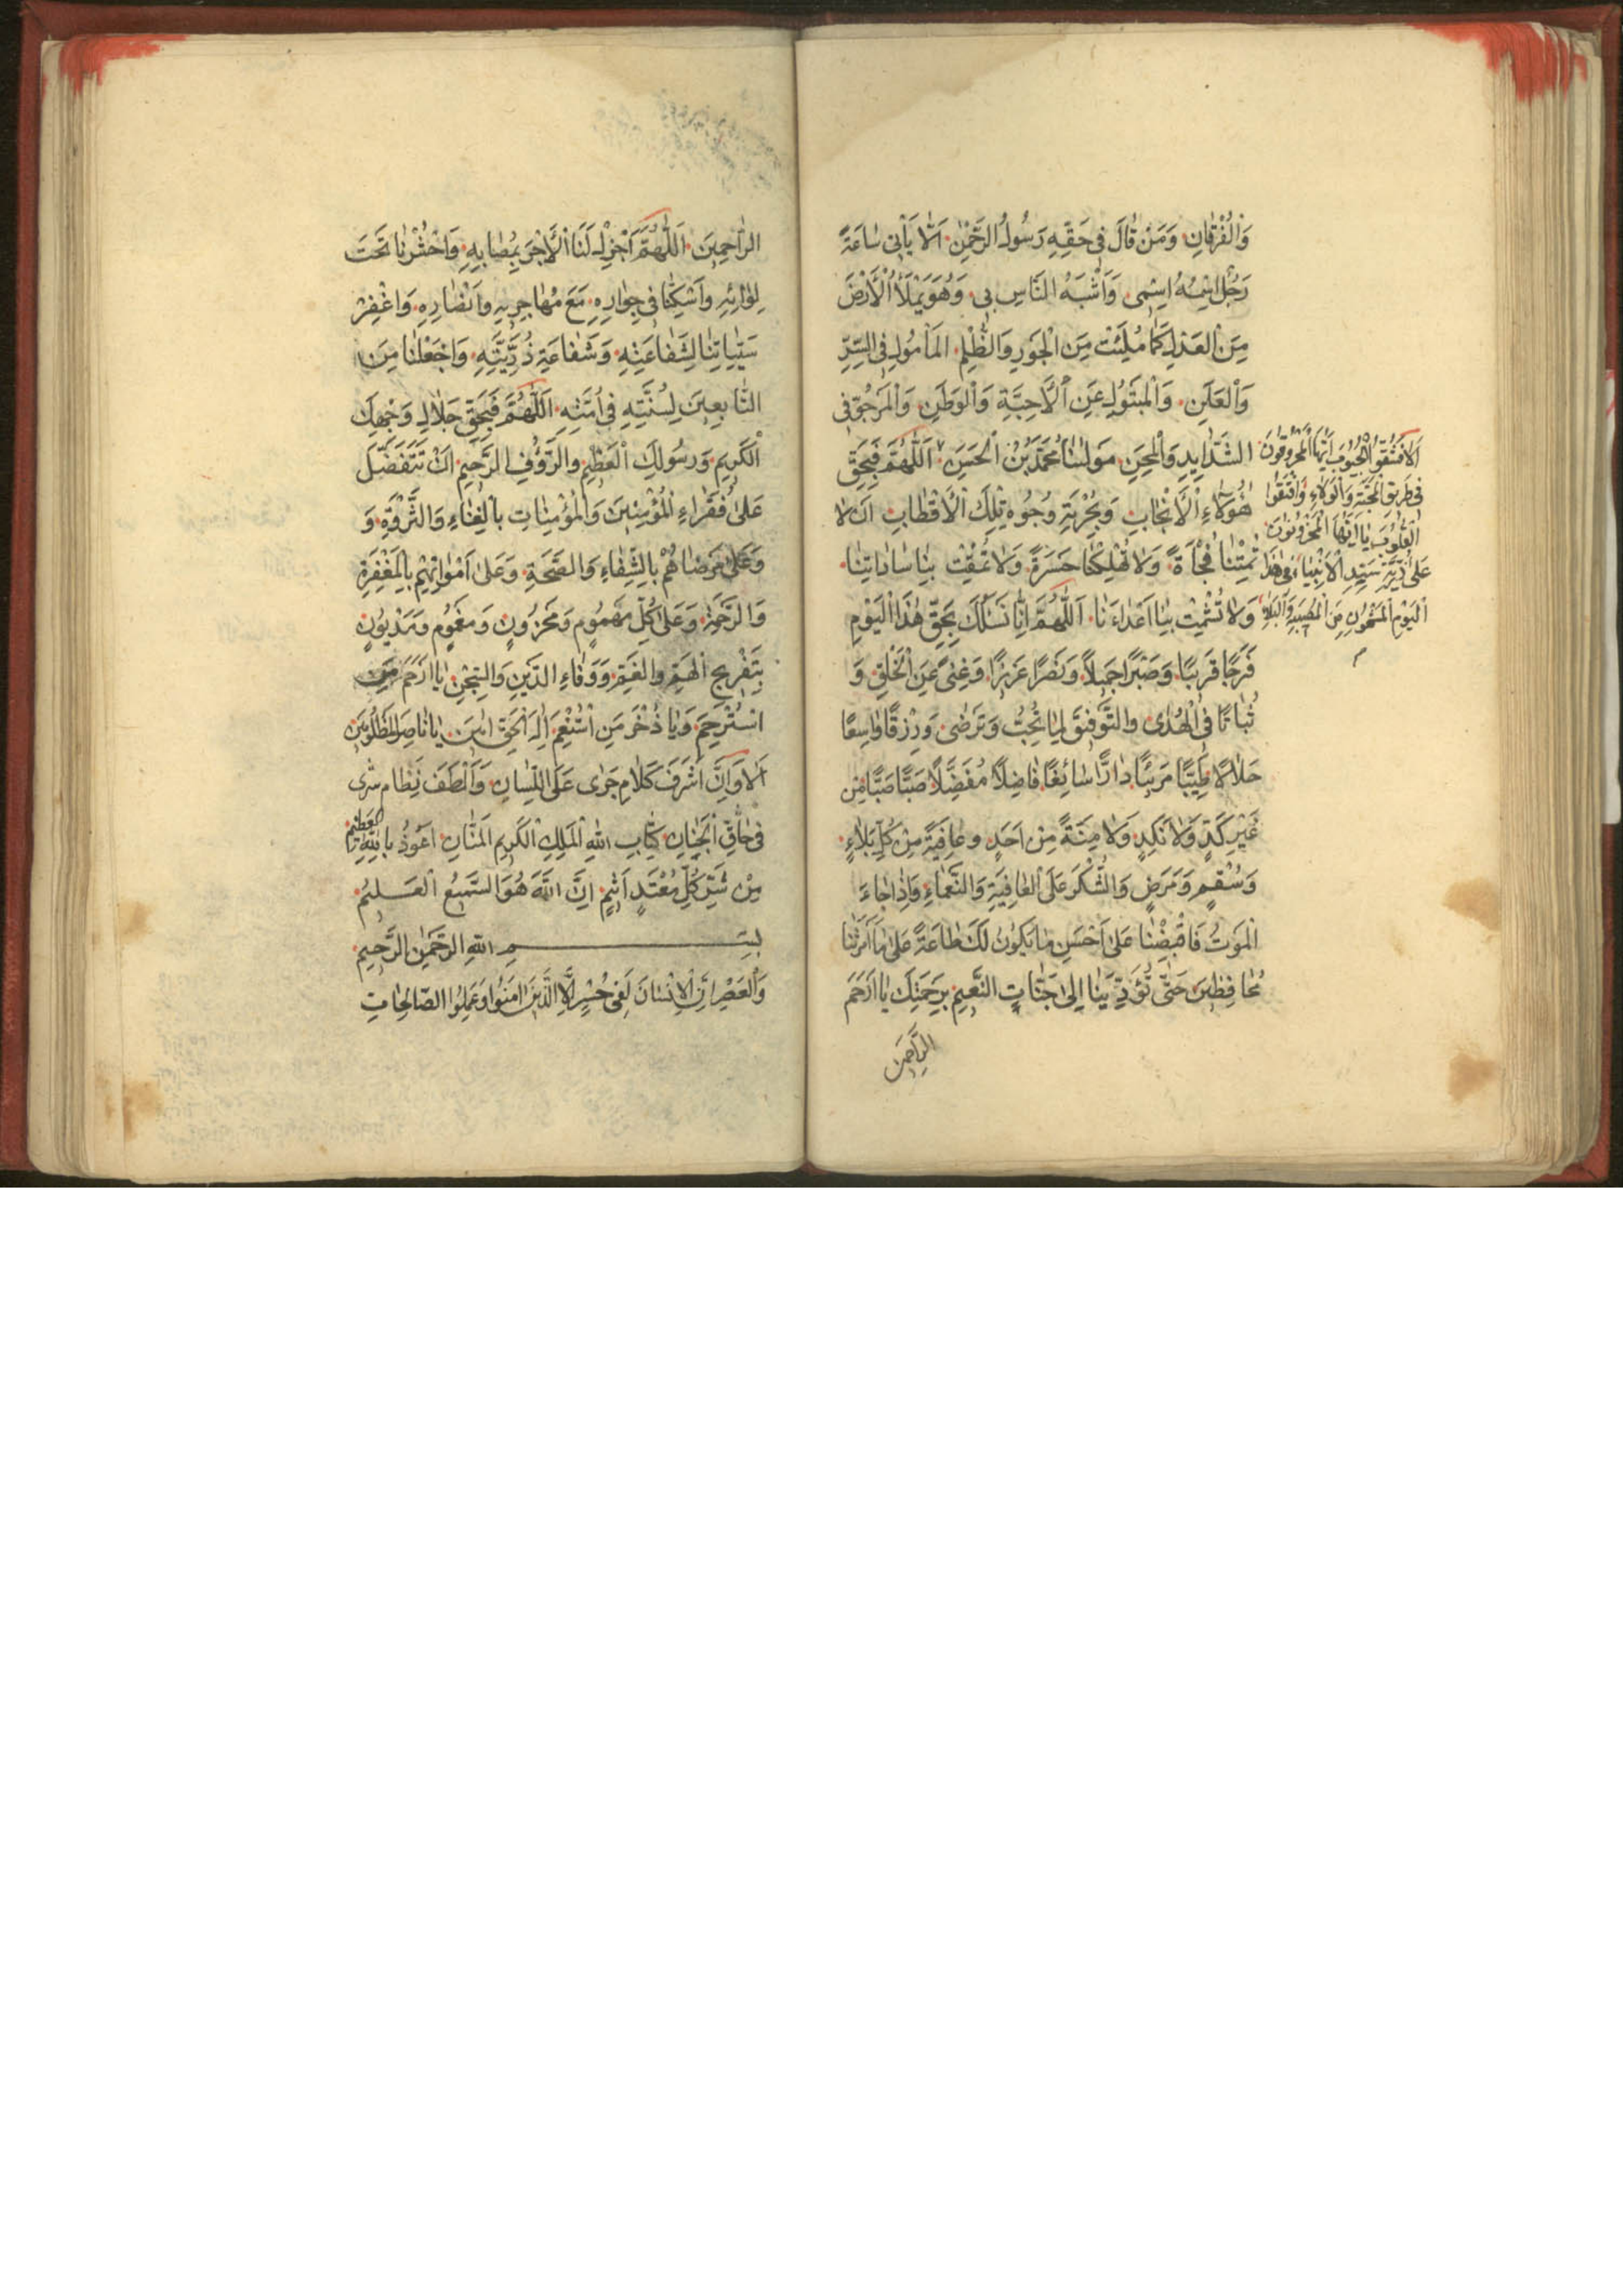 وَالْفُرْقَانِ وَمَنْ قَالَ فِي حَقِّهِ رَسُولُ الرَّحْمٰنِ اَلَا يَأْتِي سَاعَةً
رَجُلٌ اسْمُهُ اِسْمِي وَاَشْبَهُ النَّاسِ بِي وَهُوَ يَمْلَأُ الْاَرْضَ
مِنَ الْعَدْلِ كَمَا مُلِئَتْ مِنَ الْجَوْرِ وَالظُّلْمِ الْمَأْمُولِ فِي السِّرِّ
وَالْعَلَنِ وَالْمَبْتُولِ عَنِ الْاَحِبَّةِ وَالْوَطَنِ وَالْمَرْجُوِّ فِي
الشَّدَايِدِ وَالْمِحَنِ مَوْلٰنَا مُحَمَّدِ بْنِ الْحَسَنِ اَللّٰهُمَّ فَبِحَقِّ
هٰؤُلَاءِ الْاَنْجَابِ وَبِحُرْمَةِ وُجُوهِ تِلْكَ الْاَقْطَابِ اَنْ لَا
تُمِتْنَا فُجْأَةً وَلَا تُهْلِكْنَا حَسْرَةً وَلَا تَمْقُتْ بِنَا سَادَاتِنَا
وَلَا تُشْمِتْ بِنَا اَعْدَاءَنَا اَللّٰهُمَّ اِنَّا نَسْئَلُكَ بِحَقِّ هٰذَا الْيَوْمِ
فَرَجًا قَرِيبًا وَصَبْرًا جَمِيلًا وَنَصْرًا عَزِيزًا وَغِنًى عَنِ الْخَلْقِ وَ
ثُبَاتًا فِي الْهُدٰى وَالتَّوْفِيقَ لِمَا تُحِبُّ وَتَرْضٰى وَرِزْقًا وَاسِعًا
حَلَالًا طَيِّبًا مَرِيئًا دَارًّا سَائِغًا فَاضِلًا مُفَضِّلًا صَبًّا صَبًّا مِنْ
غَيْرِ كَدٍّ وَلَا نَكَدٍ وَلَا مِنَّةً مِنْ اَحَدٍ وَعَافِيَةً مِنْ كُلِّ بَلَاءٍ
وَسُقْمٍ وَمَرَضٍ وَالشُّكْرَ عَلَى الْعَافِيَةِ وَالنَّعْمَاءِ وَاِذَا جَاءَ
الْمَوْتُ فَاقْبِضْنَا عَلٰى اَحْسَنِ مَا يَكُونُ لَكَ طَاعَةً عَلٰى مَا اَمَرْتَنَا
مُحَافِظِينَ حَتّٰى تُؤَدِّيَنَا اِلٰى جَنَّاتِ النَّعِيمِ بِرَحْمَتِكَ يَا اَرْحَمَ
الرَّاحِمِينَ
اَلَا فَشُقُّوا الْجُيُوبَ اَيُّهَا الْمَحْرُوقُونَ
فِي طَرِيقِ الْمَحَبَّةِ وَالْوَلَاءِ
الْقُلُوبَ يَا اَيُّهَا الْمَحْزُونُونَ
عَلٰى ذُرِّيَّةِ سَيِّدِ الْاَنْبِيَاءِ فِي هٰذَا
الْيَوْمِ الْمَشْحُونِ مِنَ الْمُصِيبَةِ وَالْبَلَاءِ
الرَّاحِمِينَ اَللّٰهُمَّ اَجْزِلْ لَنَا الْاَجْرَ بِمُصَابِهِ وَاحْشُرْنَا تَحْتَ
لِوَائِهِ وَاَسْكِنَّا فِي جِوَارِهِ مَعَ مُهَاجِرِيهِ وَاَنْصَارِهِ وَاغْفِرْ
سَيِّئَاتِنَا لِشَفَاعَتِهِ وَشَفَاعَةِ ذُرِّيَّتِهِ وَاجْعَلْنَا مِنَ
التَّابِعِينَ لِسُنَّتِهِ فِي اُمَّتِهِ اَللّٰهُمَّ فَبِحَقِّ جَلَالِ وَجْهِكَ
الْكَرِيمِ وَرَسُولِكَ الْعَظِيمِ وَالرَّؤُفِ الرَّحِيمِ اَنْ تَتَفَضَّلَ
عَلٰى فُقَرَاءِ الْمُؤْمِنِينَ وَالْمُؤْمِنَاتِ بِالْغِنَاءِ وَالثَّرْوَةِ وَ
وَعَلٰى مَرْضَاهُمْ بِالشِّفَاءِ وَالصِّحَّةِ وَعَلٰى اَمْوَاتِهِمْ بِالْمَغْفِرَةِ
وَالرَّحْمَةِ وَعَلٰى كُلِّ مَهْمُومٍ وَمَحْزُونٍ وَمَغْمُومٍ وَمَدْيُونٍ
بِتَفْرِيجِ الْهَمِّ وَالْغَمِّ وَوَفَاءِ الدَّيْنِ وَالسِّجْنِ يَا اَرْحَمَ مَنِ
اسْتُرْحِمَ وَيَا ذُخْرَ مَنِ اسْتُنْعِمَ اِلٰهَ الْحَقِّ اٰمِينَ يَا نَاصِرَ الْمَظْلُومِينَ
اَلَا وَاِنَّ اَشْرَفَ كَلَامٍ جَرٰى عَلَى اللِّسَانِ وَاَلْطَفَ نِظَامٍ سَرٰى
فِي حَاقِّ الْجَنَانِ كِتَابُ اللّٰهِ الْمَلِكِ الْكَرِيمِ الْمَنَّانِ اَعُوذُ بِاللّٰهِ الْعَظِيمِ
مِنْ شَرِّ كُلِّ مُعْتَدٍ اَثِيمٍ اِنَّ اللّٰهَ هُوَ السَّمِيعُ الْعَلِيمُ
بِسْمِ اللّٰهِ الرَّحْمٰنِ الرَّحِيمِ
وَالْعَصْرِ اِنَّ الْاِنْسَانَ لَفِي خُسْرٍ اِلَّا الَّذِينَ اٰمَنُوا وَعَمِلُوا الصَّالِحَاتِ